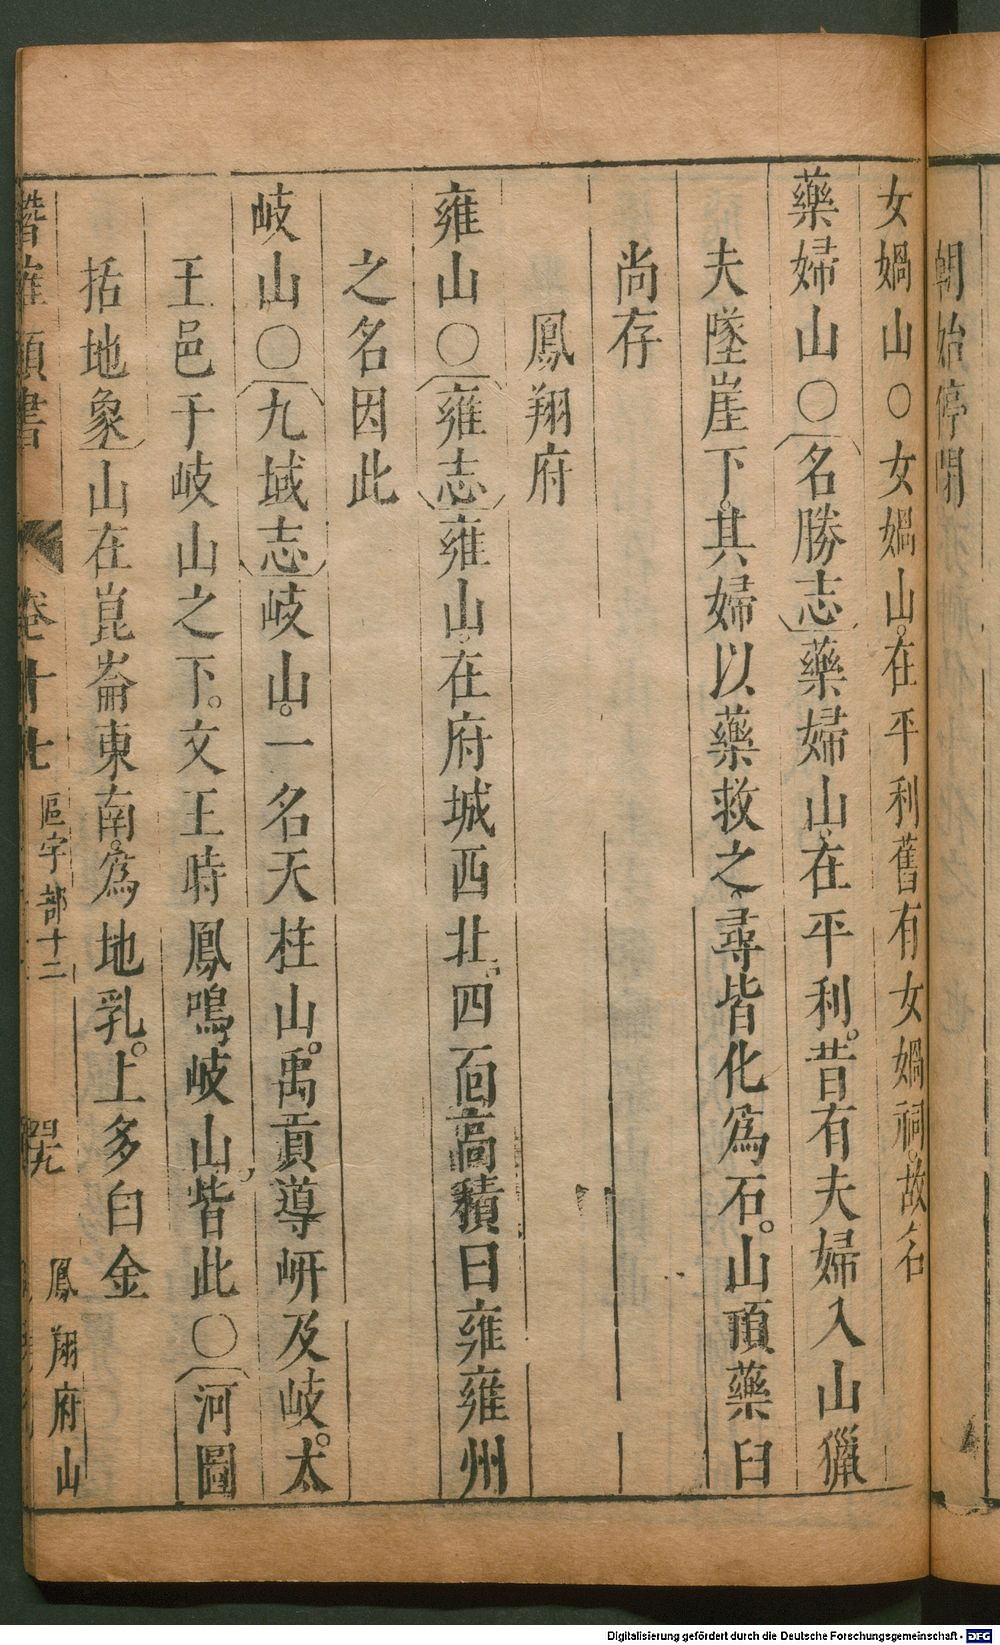 朝始停開
女媧山〇女媧山。在平利舊有女媧祠。故名
藥婦山〇〔名勝志〕藥婦山。在平利。昔有夫婦入山獵
夫墜崖下。其婦以藥救之。尋皆化爲石。山頂藥臼
尚存
鳳翔府
雍山〇〔雍志〕雍山。在府城西北。四面高積曰雍雍州
之名因此
岐山〇〔九域志〕岐山。一名天柱山。禹貢導岍及岐。太
王邑于岐山之下。文王時鳳鳴岐山。皆此〇〔河圖
括地象〕山在崑崙東南。爲地乳。上多白金
潛確類書
卷十七
區宇部十二
四九
鳳翔府山
Digitalisierung gefördert durch die Deutsche Forschungsgemeinschaft - DFG